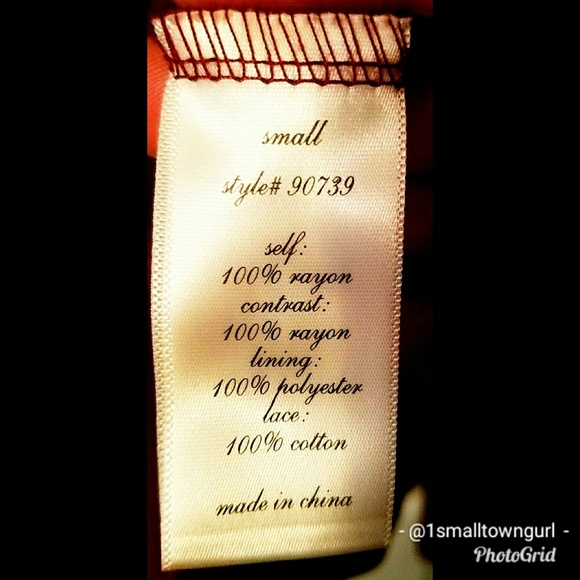 small
style# 90739
self:
100% rayon
contrast:
100% rayon
lining:
100% polyester
lace:
100% cotton
made in china
- @1smalltowngurl -
PhotoGrid